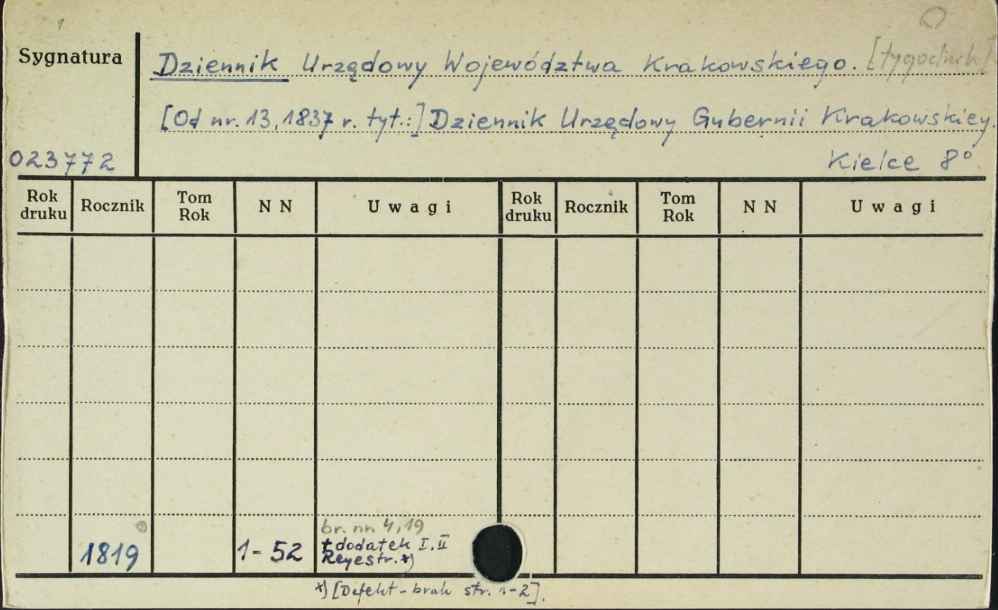 Sygnatura
Dziennik Urzędowy Województwa Krakowskiego. [tygodnik]
[Od nr. 13, 1837 r. tyt.:] Dziennik Urzędowy Gubernii Krakowskiey.
023772
Kielce 8°
Rok druku Rocznik Tom Rok N N Uwagi Rok druku Rocznik Tom Rok N N Uwagi
br. nn 4, 19
1819 1-52 + dodatek I. II
Reyestr. *)
*) [Defekt - brak str. 1-2].